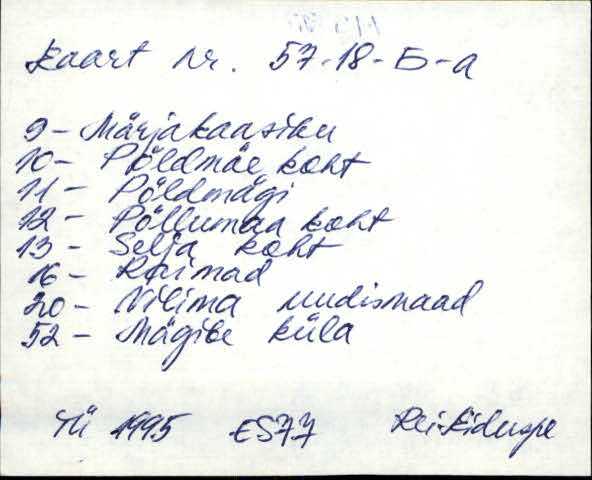 Kaart nr. 57-18-Б-а
9 - Märjakaasiku
10 - Põldmäe koht
11 - Põldmägi
12 - Põllumaa koht
13 - Selja koht
16 - Raimad
20 - Vilima uudismaad
52 - Mägibe küla
TÜ 1995 ES77